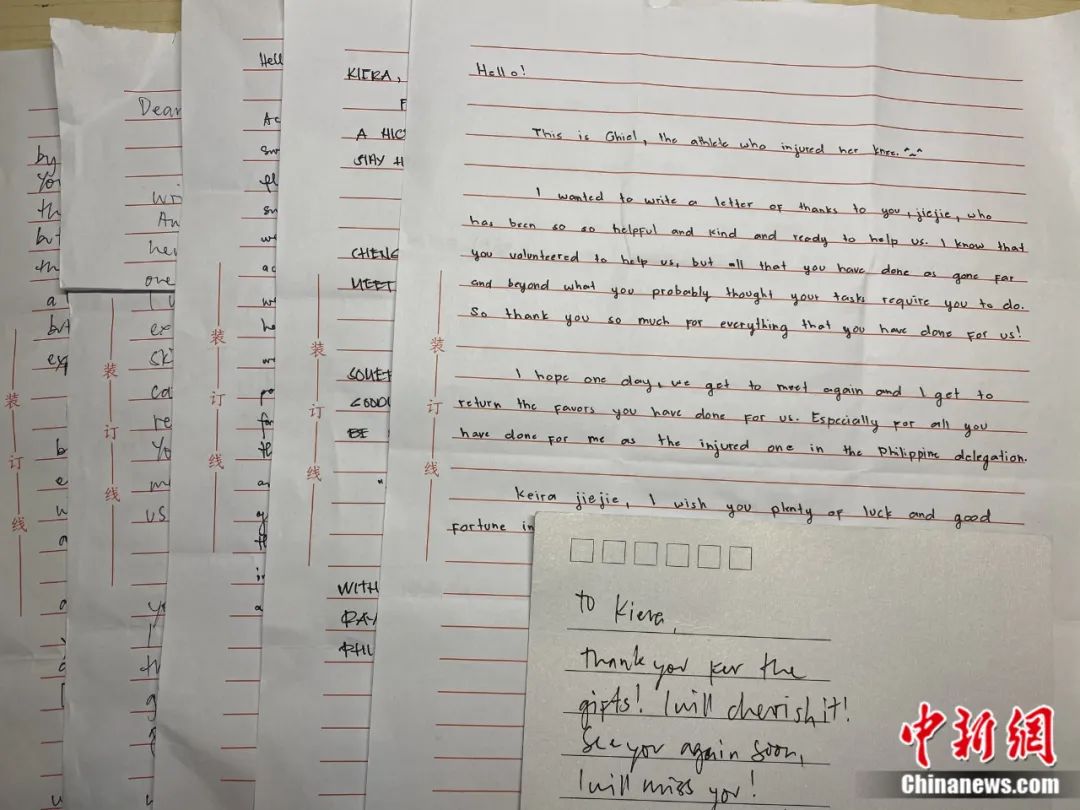 by
You
th
but
th
a
but
exp
b
e
w
a
a
装
订
线
Dear
Wri
An
her
one
I
ex
sk
ca
re
Yo
m
us
yo
I
th
g
装
订
线
Hell
Ac
sw
pl
sn
we
ac
we
he
we
po
for
th
an
g
th
in
a
装
订
线
KIERA,
F
A HIG
STAY H
CHENG
MEET
SOMET
GOOD
BE
"
WITH
RAY
PHIL
装
订
线
Hello!
This is Ghiel, the athlete who injured her knee. ^~^
I wanted to write a letter of thanks to you, jiejie, who
has been so so helpful and kind and ready to help us. I know that
you volunteered to help us, but all that you have done as gone far
and beyond what you probably thought your tasks require you to do.
So thank you so much for everything that you have done for us!
I hope one day, we get to meet again and I get to
return the favors you have done for us. Especially for all you
have done for me as the injured one in the Philippine delegation.
Keira jiejie, I wish you plenty of luck and good
fortune in
装
订
线
To Kiera,
Thank you for the
gifts! I will cherish it!
See you again soon,
I will miss you!
中新网
Chinanews.com